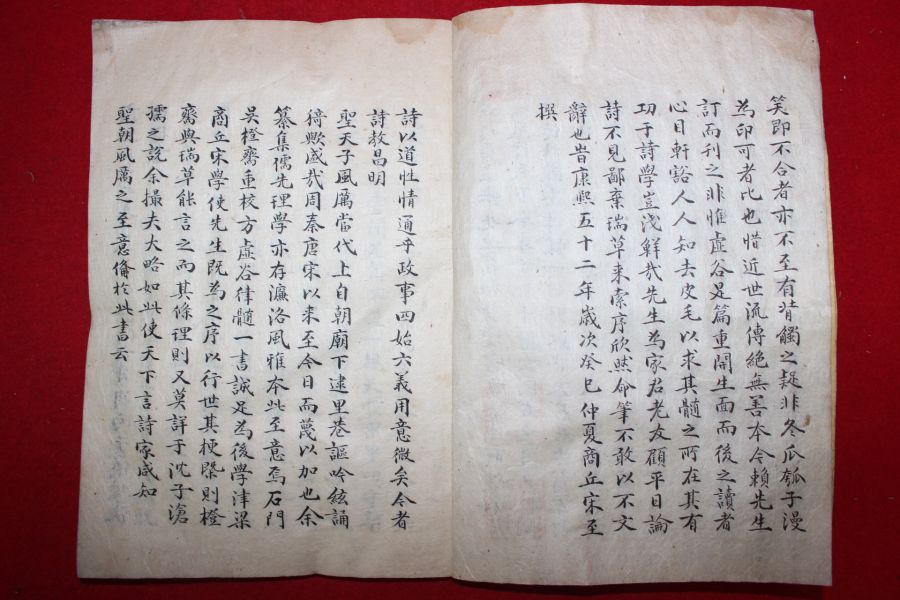 笑即不合者亦不至有背觸之疑非冬瓜瓠子漫
為印可者比也惜近世流傳絕無善本今賴先生
訂而刊之非惟虛谷是篇重開生面而後之讀者
心目軒豁人人知去皮毛以求其髓之所在其有
功于詩學豈淺鮮哉先生為家君老友顧平日論
詩不見鄙棄瑞草來索序欣然命筆不敢以不文
辭也旹康熙五十二年歲次癸巳仲夏商丘宋至
撰
詩以道性情通乎政事四始六義用意微矣今者
詩教昌明
聖天子風厲當代上自朝廟下逮里巷謳吟絃誦
猗歟盛哉周秦唐宋以來至今日而蔑以加也余
纂集儒先理學亦存濂洛風雅本此至意焉石門
吳橙齋重校方虛谷律髓一書誠足為後學津梁
商丘宋學使先生既為之序以行世其梗槩則橙
齋與瑞草能言之而其條理則又莫詳于沈子滄
孺之說余撮夫大略如此使天下言詩家咸知
聖朝風厲之至意備於此書云